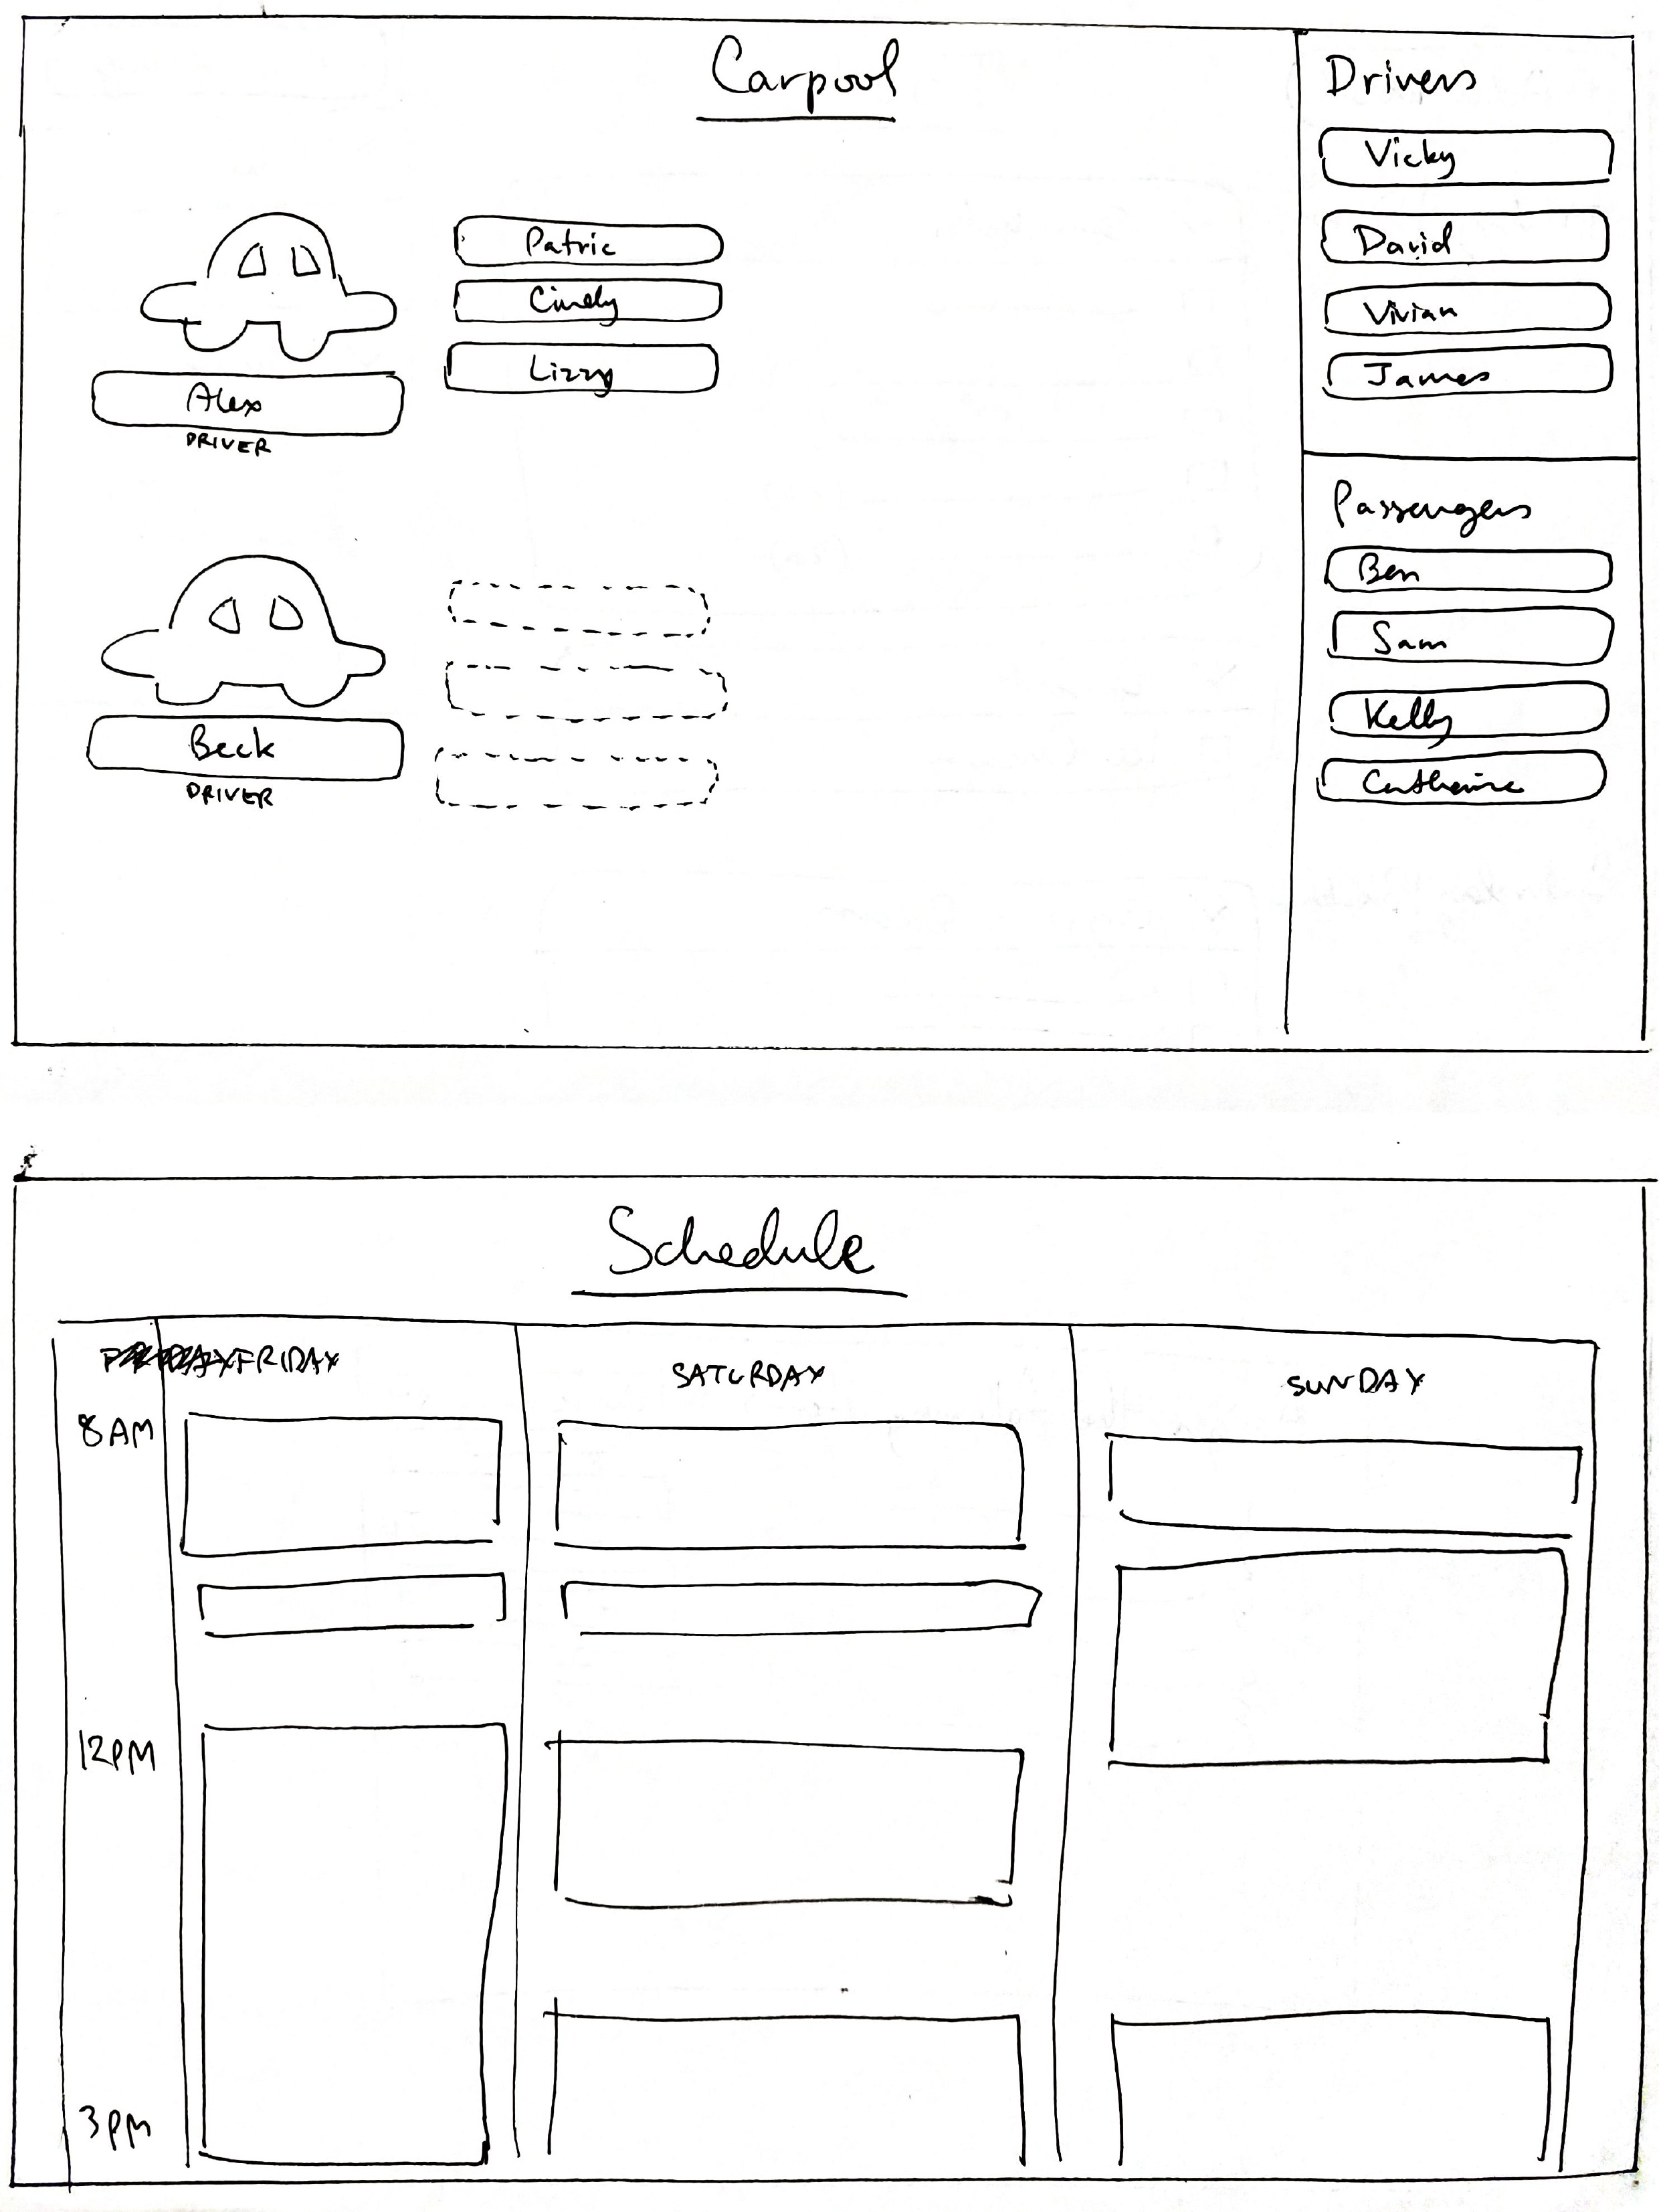 Carpool
Patric
Cindy
Lizzy
Alex
DRIVER
Beck
DRIVER
Drivers
Vicky
David
Vivian
James
Passengers
Ben
Sam
Kelly
Catherine
Schedule
FRIDAY SATURDAY SUNDAY
8 AM
12PM
3PM